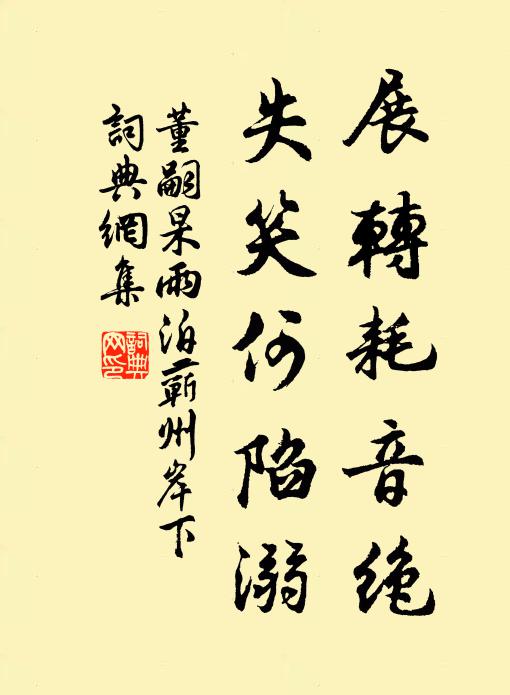 展轉耗音绝
失笑何陷溺
董嗣杲雨泊蘄州岸下
詞典網集
詞典网印